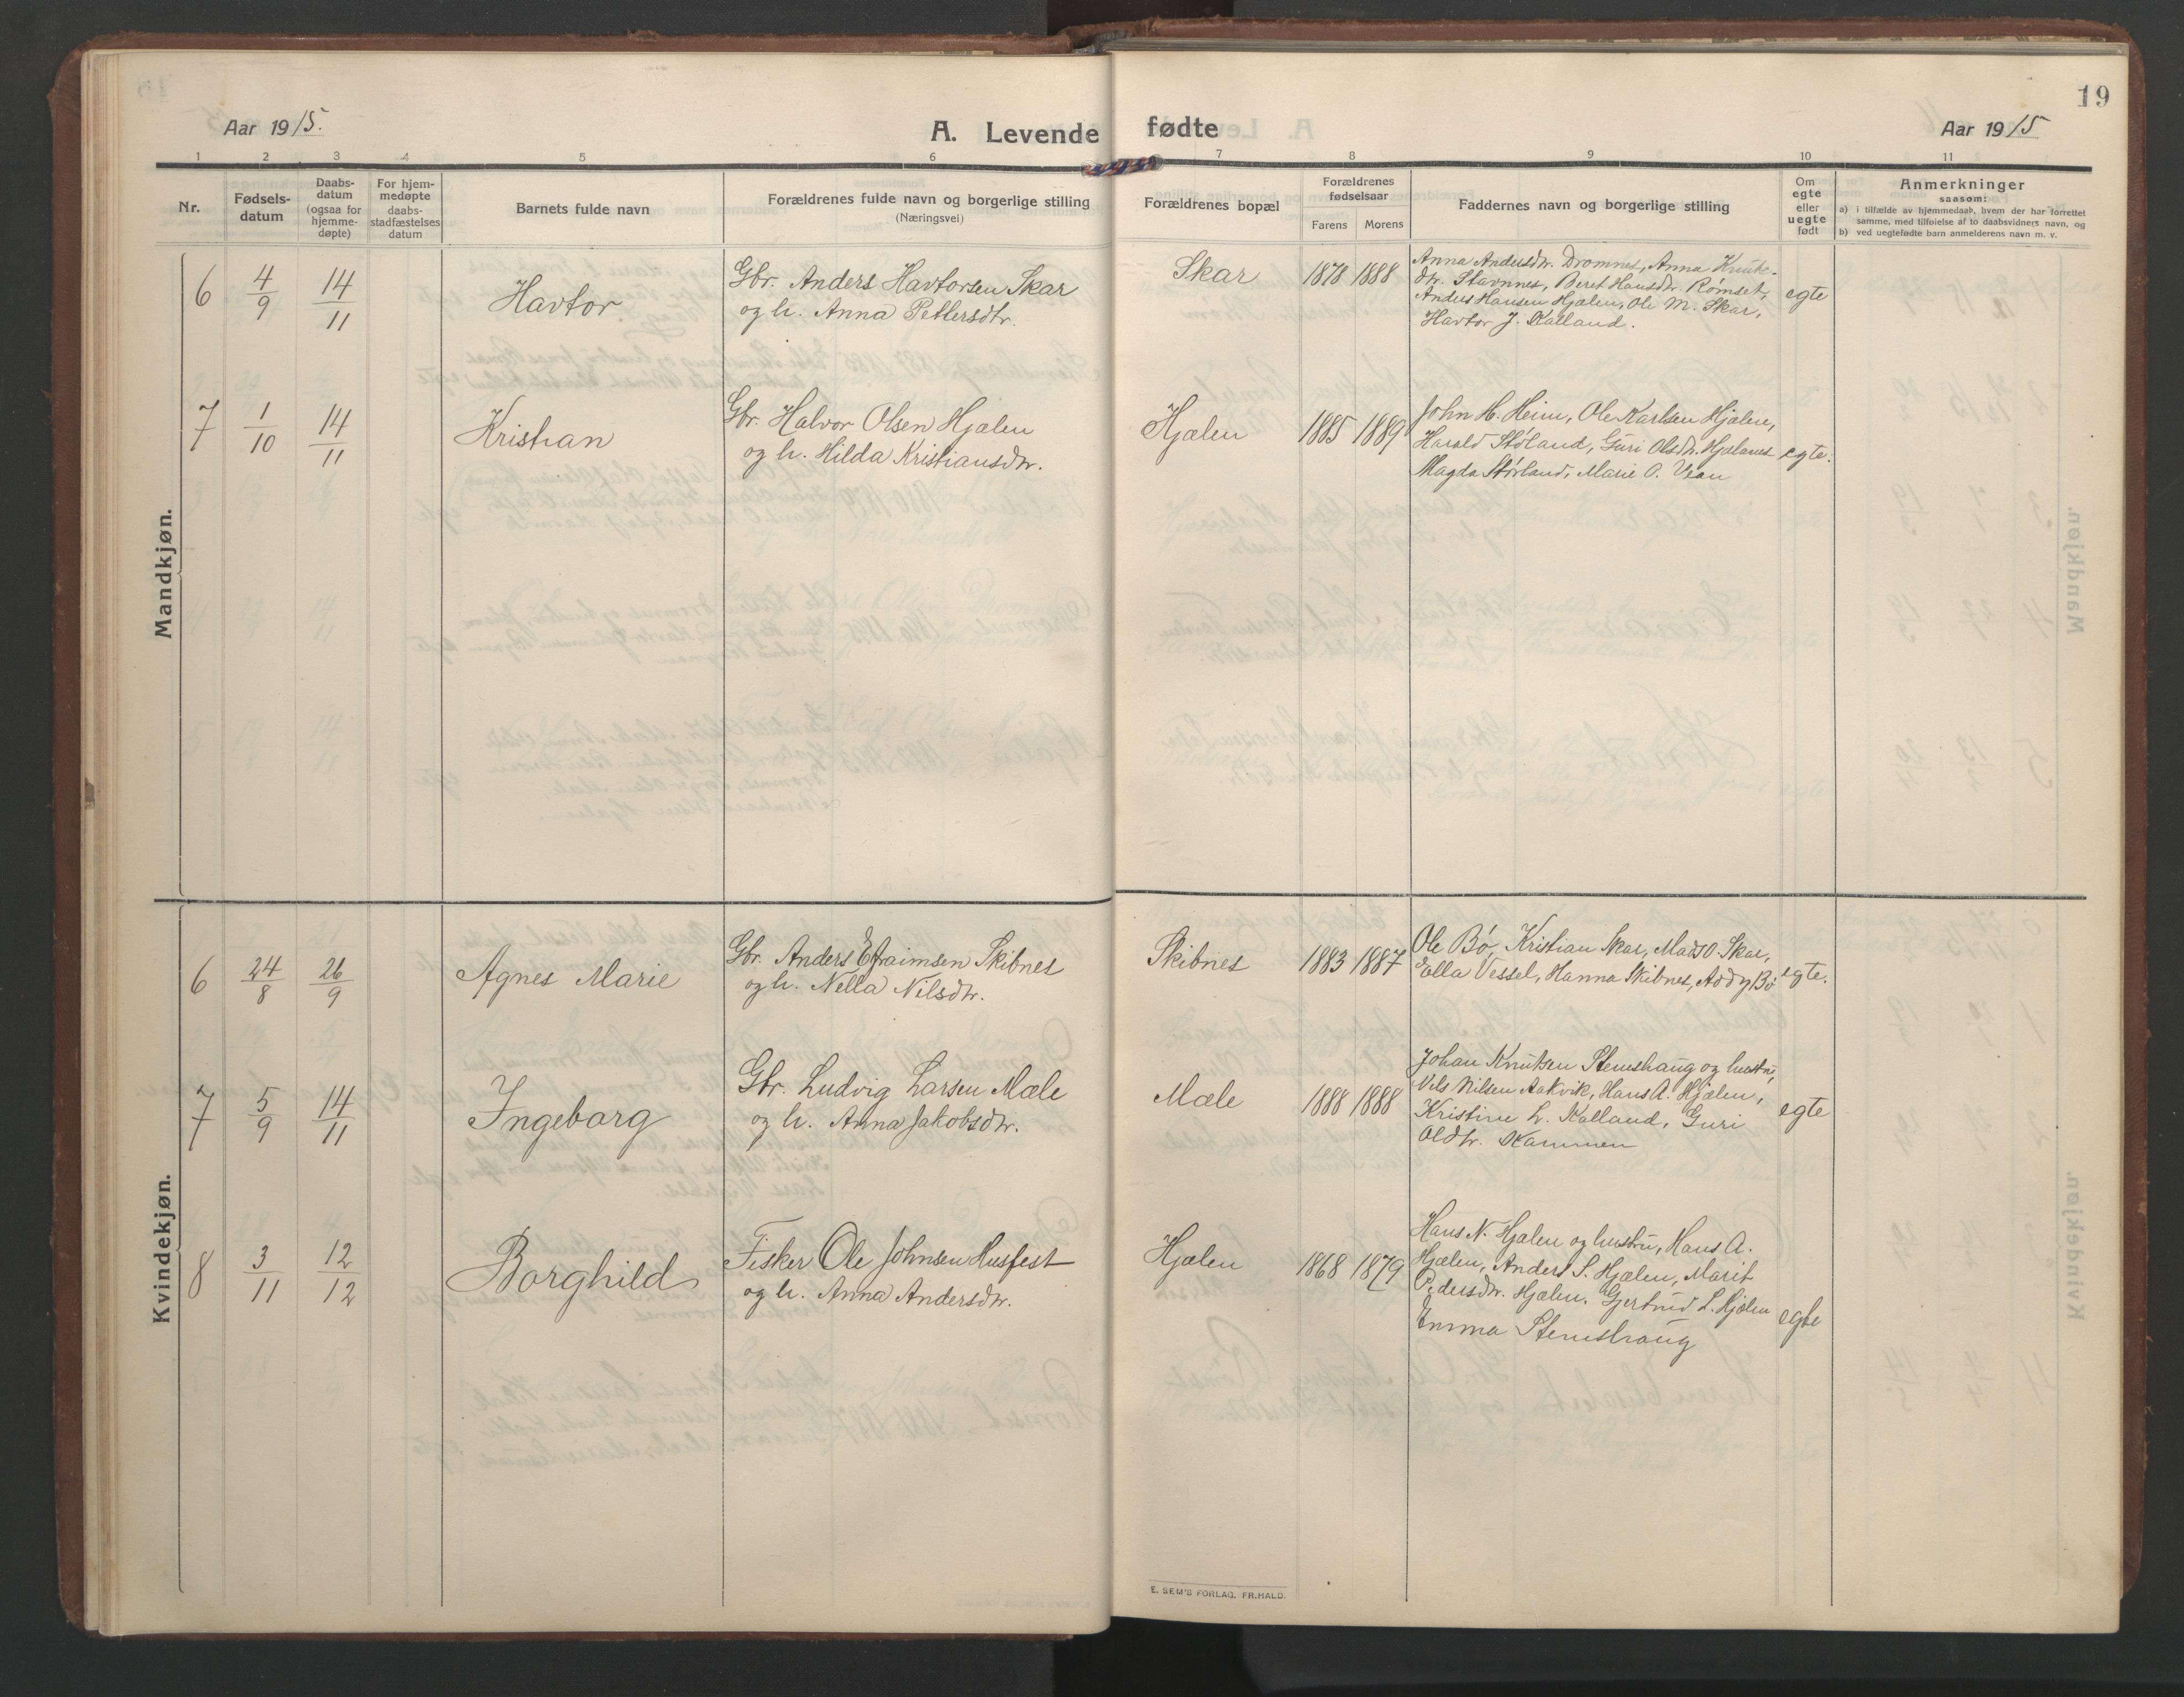 19
Aar 1915.
A. Levende fødte
Aar 1915
1 2 3 4 5 6 7 8 9 10 11
Nr.
Fødsels-
datum
Daabs-
datum
(ogsaa for
hjemme-
døpte)
For hjem-
medøpte
daabs-
stadfæstelses
datum
Barnets fulde navn
Forældrenes fulde navn og borgerlige stilling
(Næringsvei)
Forældrenes bopæl
Forældrenes
fødselsaar
Farens Morens
Faddernes navn og borgerlige stilling
Om
egte
eller
uegte
født
Anmerkninger
saasom:
a) i tilfælde av hjemmedaab, hvem der har forrettet
samme, med tilføielse af to daabsvidners navn, og
b) ved uegtefødte barn anmelderens navn m. v.
Mandkjøn.
6 4/9 14/11 Havtor
Gbr. Anders Havtorsen Skar
og h. Anna Pettersdtr.
Skar 1878 1888
Anna Andersdtr. Dromnes, Anna Knuts-
dtr. Stavnes, Beret Hansdtr. Rømset,
Anders Hansen Hjælen, Ole M. Skar,
Havtor J. Kalland.
egte
7 1/10 14/11 Kristian
Gbr. Halvor Olsen Hjælen
og h. Hilda Kristiansdtr.
Hjælen 1885 1889
John H. Heim, Ole Karlsen Hjælen,
Harald Støland, Guri Olsdtr. Hjælanes
Magda Størland, Marie O. Vean
egte.
Kvindekjøn.
6 24/8 26/9 Agnes Marie
Gbr. Anders Efraimsen Skibnes
og h. Nella Nilsdtr.
Skibnes 1883 1887
Ole Bø, Kristian Skar, Mads O. Skar,
Ella Vessel, Hanna Skibnes, Addy Bø
egte.
7 5/9 14/11 Ingeborg
Gbr. Ludvig Larsen Mæle
og h. Anna Jakobsdtr.
Mæle 1888 1888
Johan Knutsen Stemshaug og hustru,
Nils Nilsen Aakvik, Hans A. Hjælen,
Kristine L. Kalland, Guri
Olsdtr. Kammen
egte
8 3/11 12/12 Borghild
Fisker Ole Johnsen Husfest
og h. Anna Andersdtr.
Hjælen 1868 1879
Hans N. Hjælen og hustru, Hans A.
Hjælen, Anders S. Hjælen, Marit
Pedersdtr. Hjælen, Gjertrud L. Hjælen
Emma Stemshaug
egte
E. SEM'S FORLAG, FR.HALD.